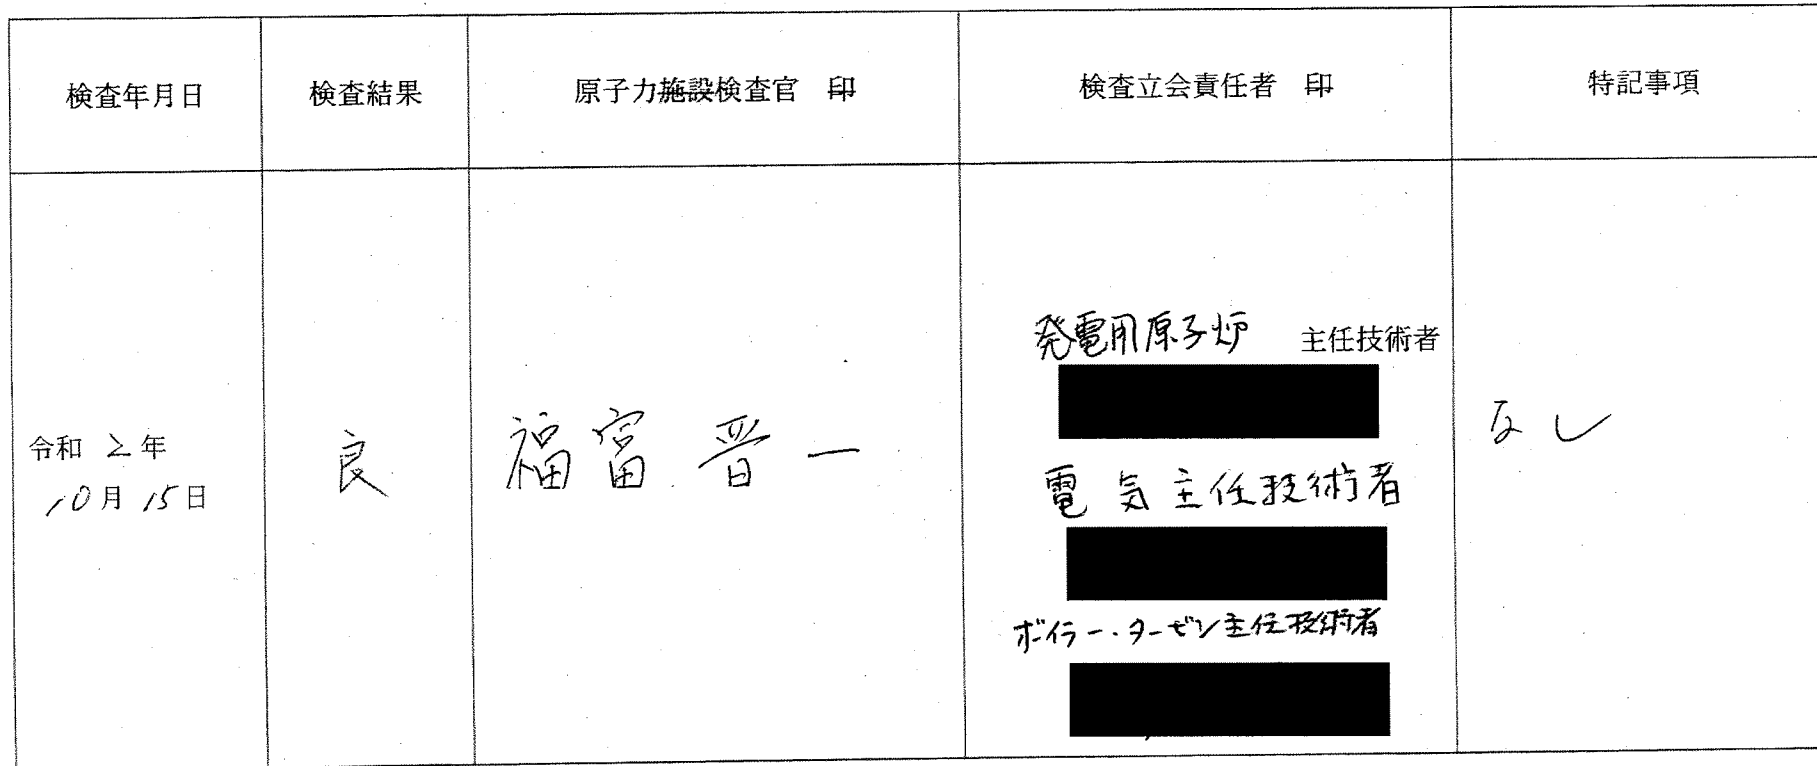 検査年月日
検査結果
原子力施設検査官 印
検査立会責任者 印
特記事項
令和 2 年
10月 15日
良
福富 晋一
発電用原子炉 主任技術者
電気主任技術者
ボイラー・タービン主任技術者
なし